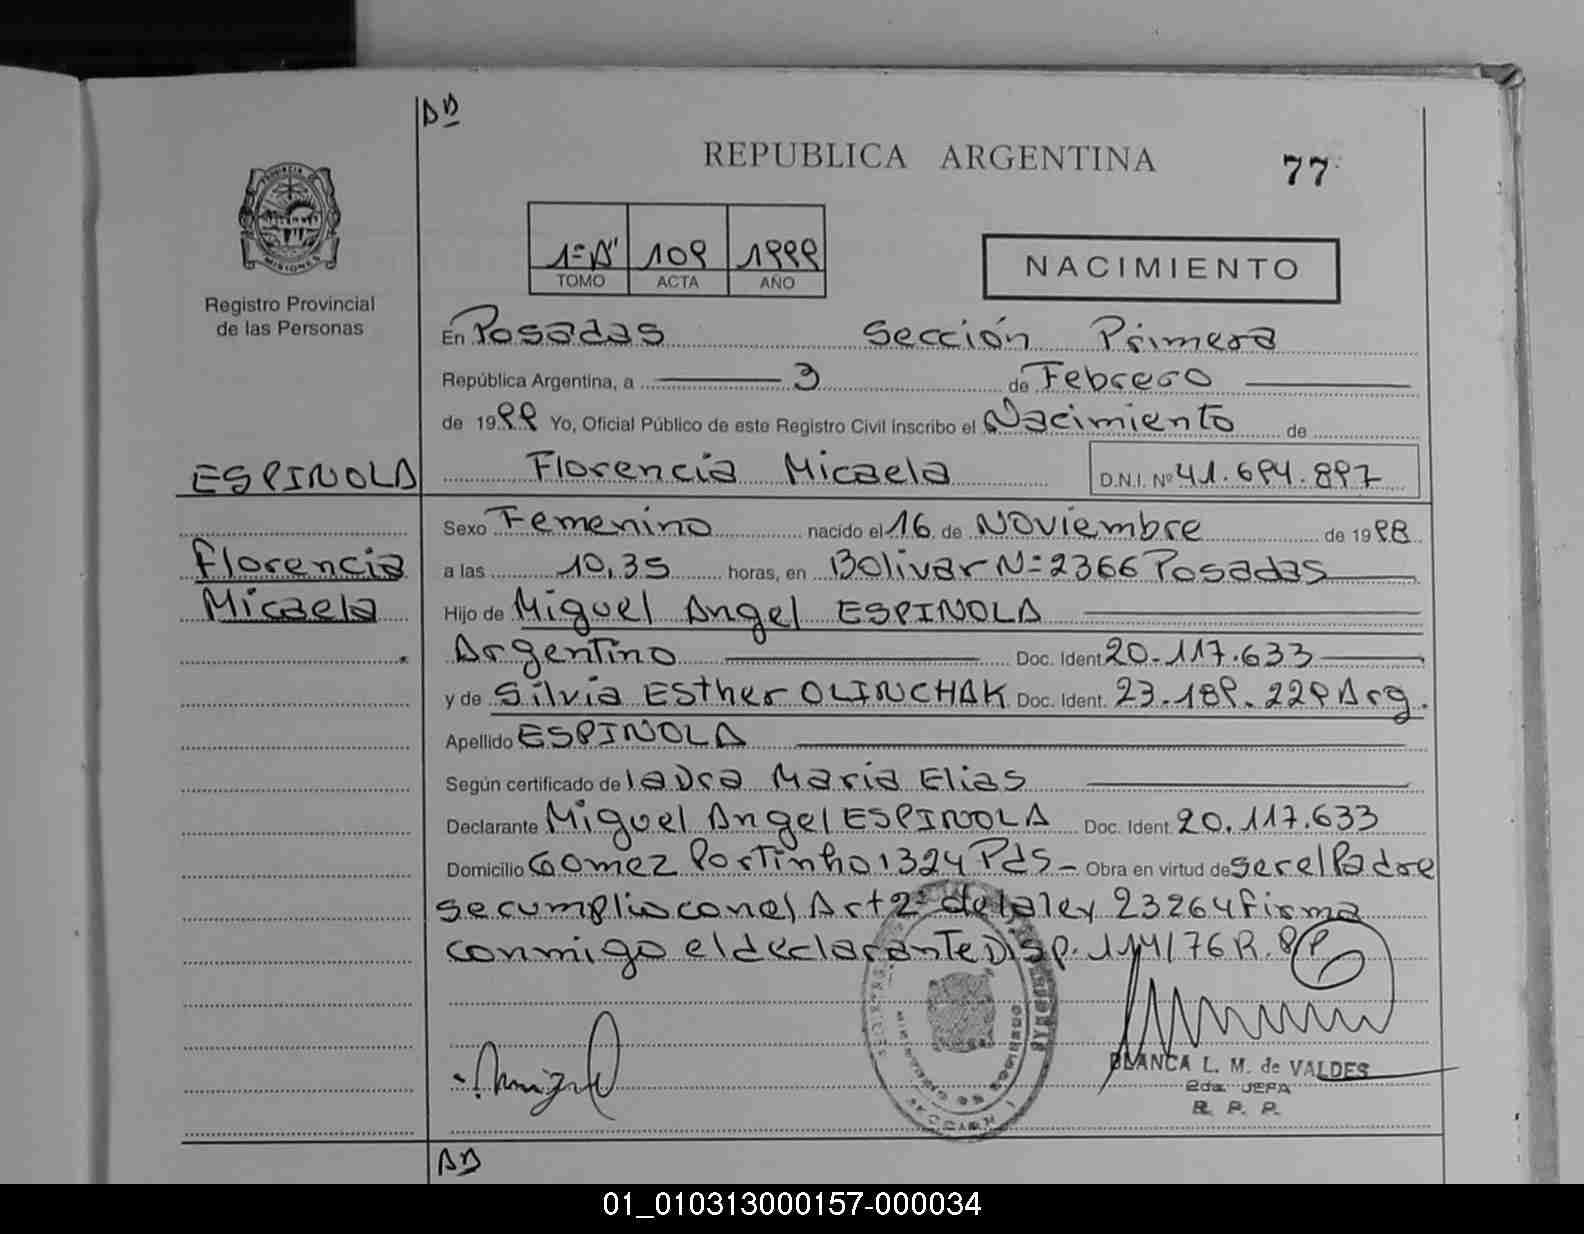 REPUBLICA ARGENTINA
77
PROVINCIA DE
MISIONES
Registro Provincial
de las Personas
1=A" 109 1999
TOMO ACTA AÑO
NACIMIENTO
En Posadas Sección Primera
República Argentina, a 3 de Febrero
de 1999 Yo, Oficial Público de este Registro Civil inscribo el Nacimiento de
ESPINOLA Florencia Micaela D.N.I. Nº 41.694.897
Sexo Femenino nacido el 16 de Noviembre de 1998
Florencia
a las 10,35 horas, en Bolivar N=2366 Posadas
Micaela
Hijo de Miguel Angel ESPINOLA
Argentino Doc. Ident. 20.117.633
y de Silvia Esther OLINCHAK Doc. Ident. 23.189.229 Arg.
Apellido ESPINOLA
Según certificado de la Dra Maria Elias
Declarante Miguel Angel ESPINOLA Doc. Ident. 20.117.633
Domicilio Gomez Portinho 1324 Pds- Obra en virtud de ser el Padre
se cumplio con el Art 2º de la ley 23264 firma
conmigo el declarante Disp. 114/76 R.
BLANCA L. M. de VALDES
2da. JEFA
R. P. P.
01_010313000157-000034